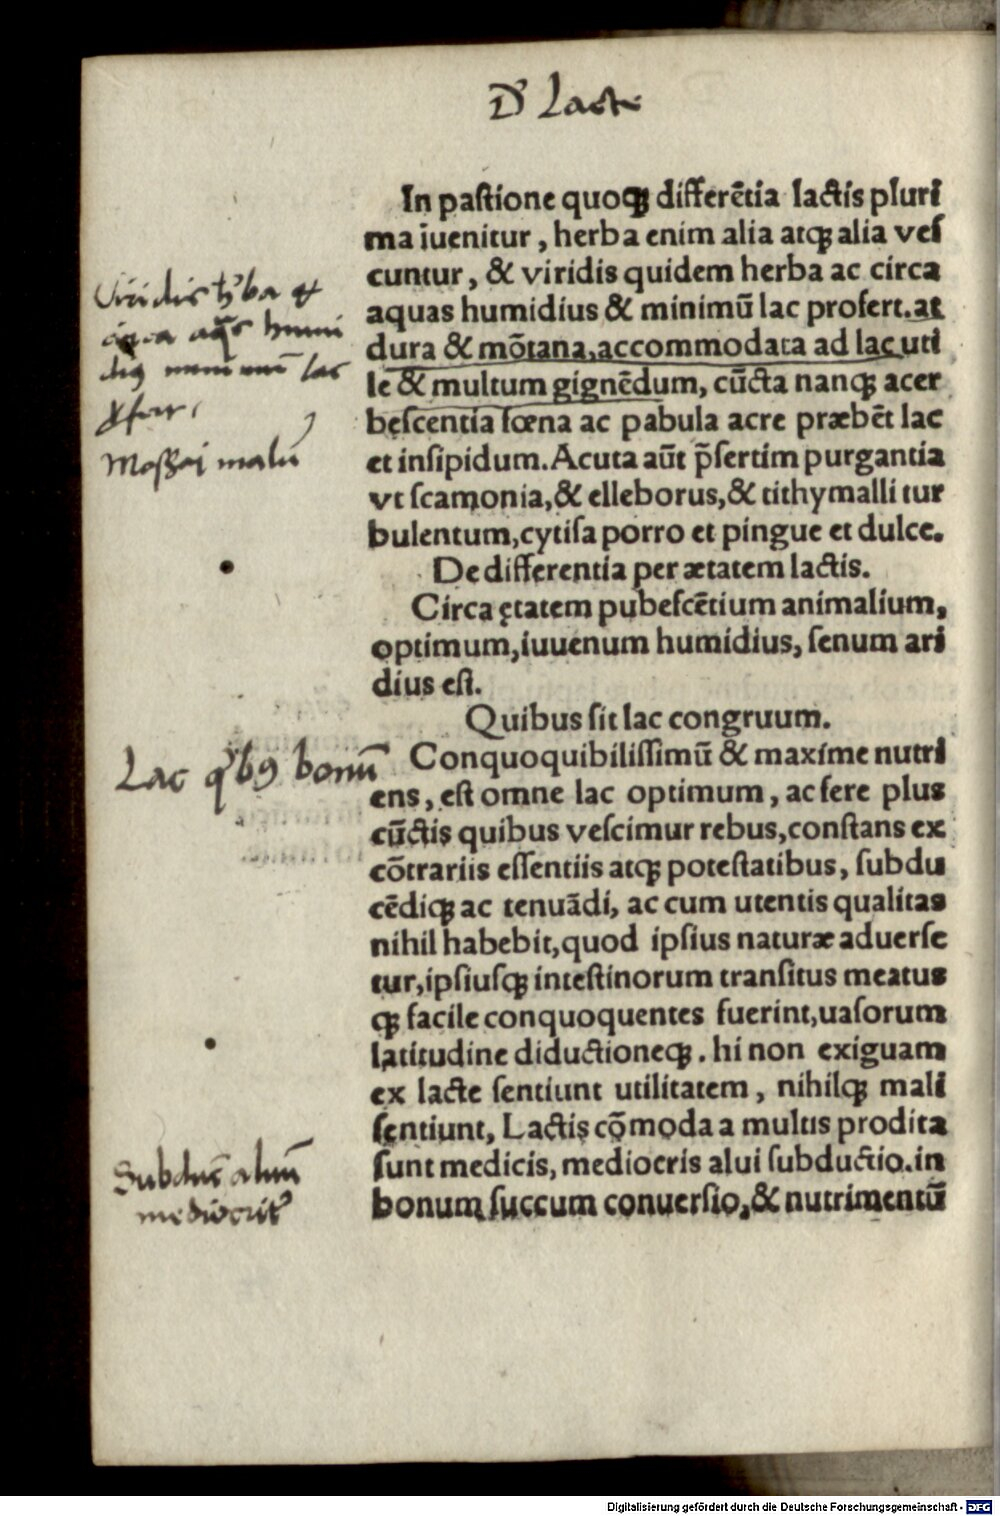 De Lacte
In paſtione quoqꝫ differētia lactis pluri
ma īuenitur, herba enim alia atqꝫ alia veſ
cuntur, & viridis quidem herba ac circa
aquas humidius & minimū lac profert. at
dura & mōtana, accommodata ad lac uti
le & multum gignēdum, cūcta nanqꝫ acer
beſcentia fœna ac pabula acre præbēt lac
et inſipidum. Acuta aūt p̄ſertim purgantia
vt ſcamonia, & elleborus, & tithymalli tur
bulentum, cytiſa porro et pingue et dulce.
De differentia per ætatem lactis.
Circa ętatem pubeſcētium animalium,
optimum, iuuenum humidius, ſenum ari
dius eſt.
Quibus ſit lac congruum.
Conquoquibiliſſimū & maxime nutri
ens, eſt omne lac optimum, ac fere plus
cūctis quibus veſcimur rebus, conſtans ex
cōtrariis eſſentiis atqꝫ poteſtatibus, ſubdu
cēdiqꝫ ac tenuādi, ac cum utentis qualitas
nihil habebit, quod ipſius naturæ aduerſe
tur, ipſiuſqꝫ inteſtinorum tranſitus meatus
qꝫ facile conquoquentes fuerint, uaſorum
latitudine diductioneqꝫ. hi non exiguam
ex lacte ſentiunt utilitatem, nihilqꝫ mali
ſentiunt, Lactis cōmoda a multis prodita
ſunt medicis, mediocris alui ſubductio. in
bonum ſuccum conuerſio, & nutrimentū
Viridis hʼba &
circa aqs humi
diꝰ minimū lac
malū
Lac qʼbꝰ bonū
Subduc̄ aluū
mediocritʼ
Digitalisierung gefördert durch die Deutsche Forschungsgemeinschaft - DFG